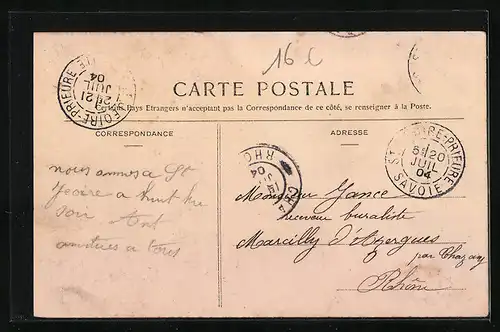 16 C
CARTE POSTALE
Certains Pays Etrangers n'acceptant pas la Correspondance de ce côté, se renseigner à la Poste.
CORRESPONDANCE
ADRESSE
FOIRE-PRIEURE
21
JUIL
04
ST
OIRE-PRIEURE
20
JUIL
04
SAVOIE
RHO
04
nous
a St
Jeoire a huit
a tous
Monsieur Jance
receveur buraliste
Marcilly d'Azergues
par Chazay
Rhône